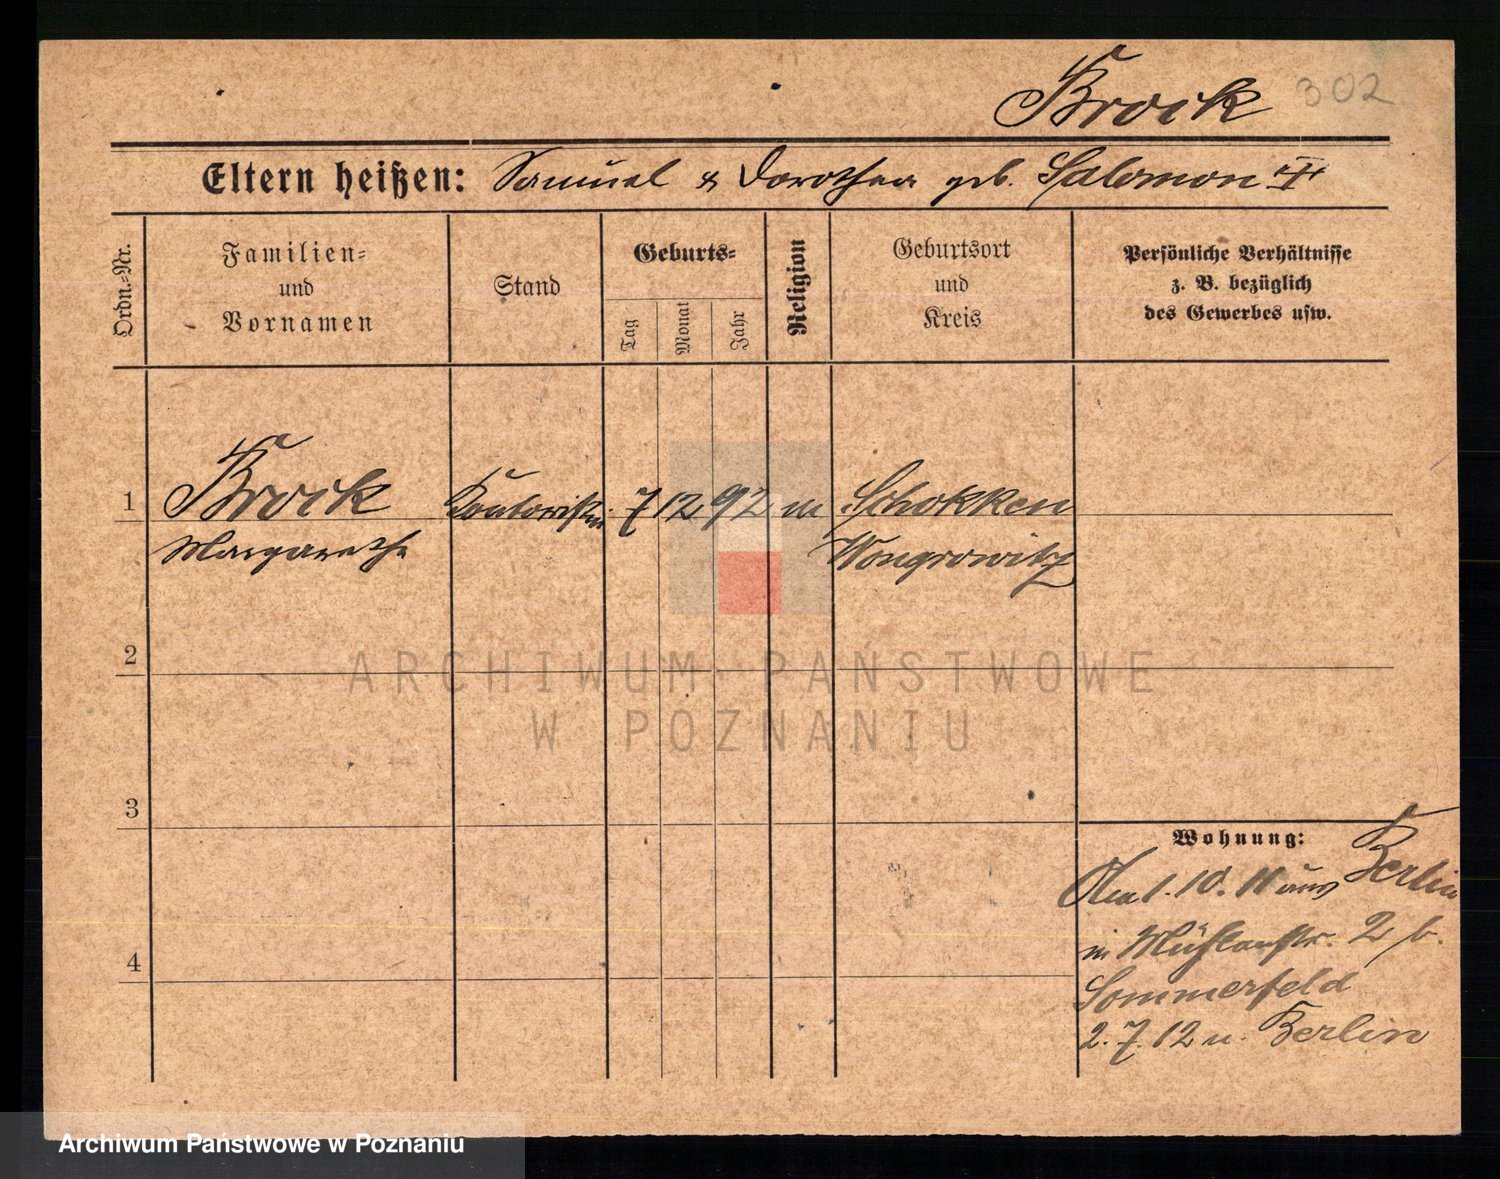 Brock 302
Eltern heißen: Samuel & Dorothea geb. Salomon ††
Ordn.-Nr.
Familien-
und
Vornamen
Stand
Geburts-
Tag
Monat
Jahr
Religion
Geburtsort
und
Kreis
Persönliche Verhältnisse
z. B. bezüglich
des Gewerbes usw.
1 Brock Kontoristin 7 12 92 m Schokken
Margarethe Wongrowitz
2
ARCHIWUM PAŃSTWOWE
W POZNANIU
3
Wohnung:
10. 11 aus Berlin
in Mühlenstr. 2 b.
Sommerfeld
4
2. 7. 12 n. Berlin
Archiwum Państwowe w Poznaniu